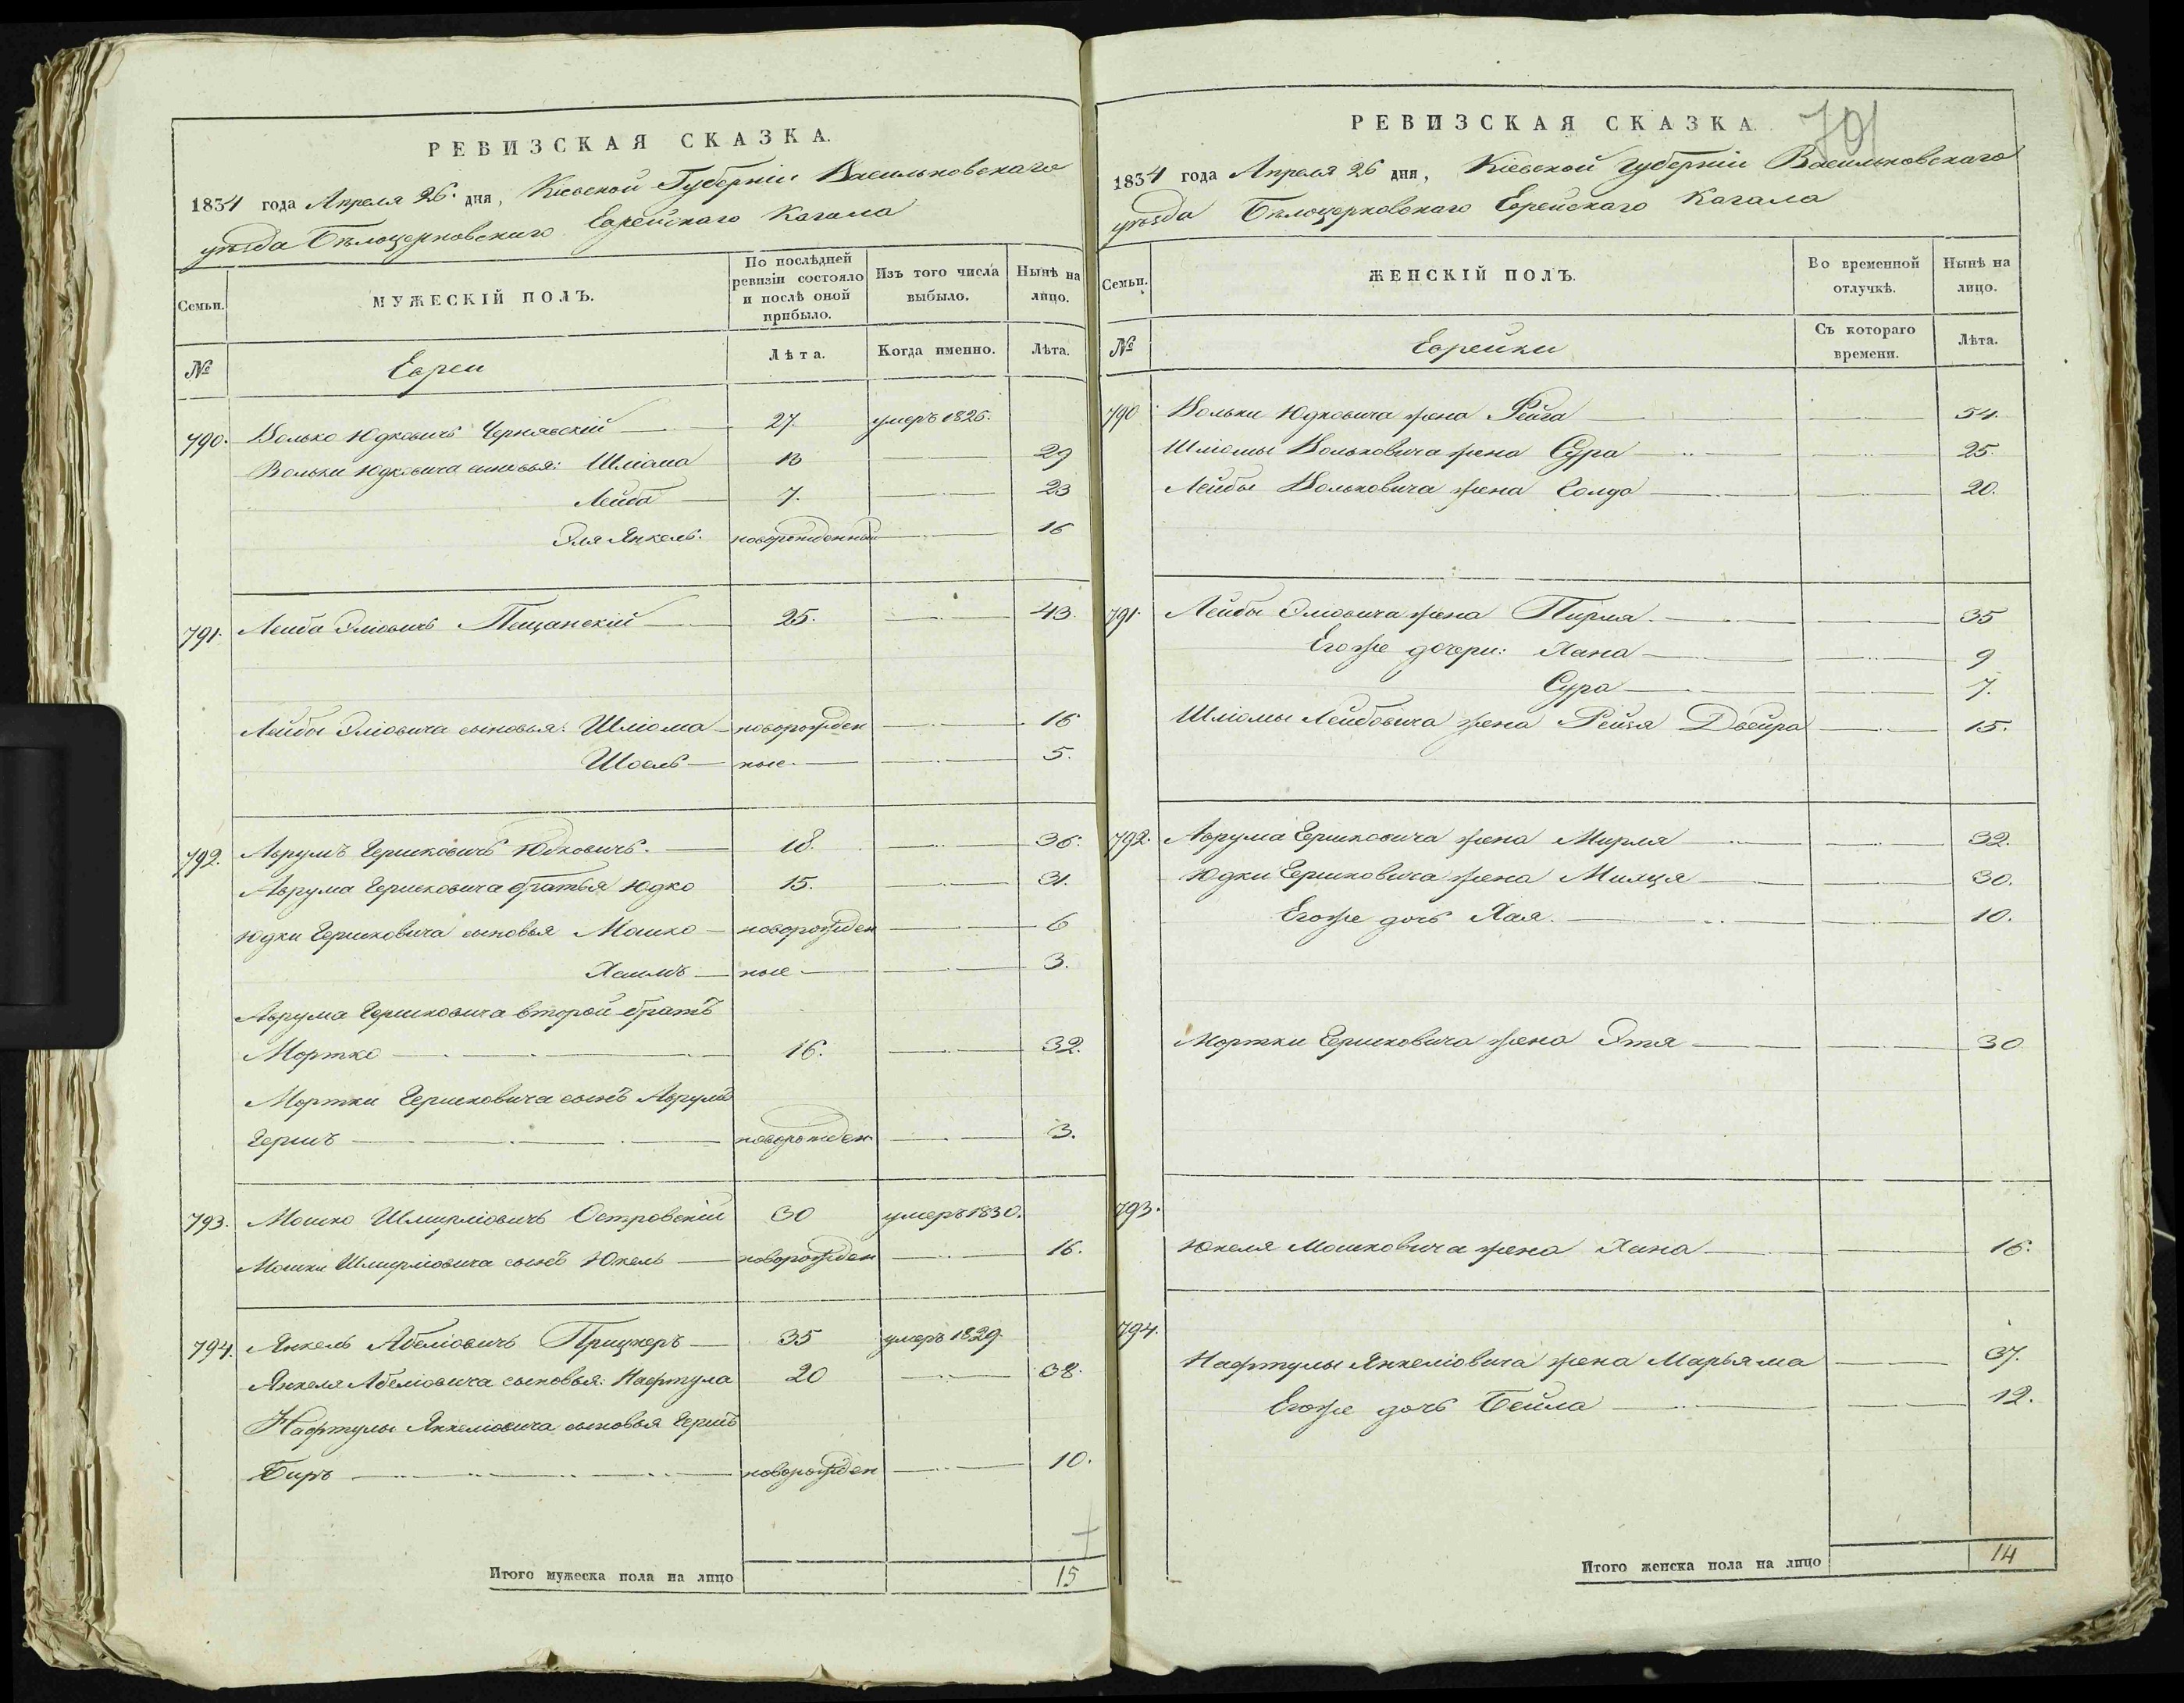 РЕВИЗСКАЯ СКАЗКА.
1834 года Апреля 26. дня, Кіевской Губерніи Васильковскаго
уѣзда Бѣлоцерковскаго Еврейскаго Кагала
Семьи. МУЖЕСКІЙ ПОЛЪ. По послѣдней ревизіи состояло и послѣ оной прибыло. Изъ того числа выбыло. Нынѣ на лицо.
№ Евреи Лѣта. Когда именно. Лѣта.
790. Волько Юдковичъ Чернявскій 27. умеръ 1826.
Вольки Юдковича сыновья: Шліома 13 29
Лейба 7. 23
Эля Янкель. новорожденный 16
791. Лейба Эліовичъ Пещанскій 25. 43.
Лейбы Эліовича сыновья: Шліома новорожден 16
Шоель ные 5.
792. Аврумъ Гершковичъ Юдковичъ. 18. 36.
Аврума Гершковича братья Юдко 15. 31.
Юдки Гершковича сыновья Мошко новорожден 6
Хаимъ ные 3.
Аврума Гершковича второй братъ
Мортко 16. 32.
Мортки Гершковича сынъ Аврумъ
Гершъ новорожден 3.
793. Мошко Шмирліовичъ Островскій 30 умеръ 1830.
Мошки Шмирліовича сынъ Юкель новорожден 16.
794. Янкель Абеліовичъ Прицкеръ 35 умеръ 1829.
Янкеля Абеліовича сыновья: Нафтула 20 38.
Нафтулы Янкеліовича сыновья Гершъ
Биръ новорожден 10.
Итого мужеска пола на лицо 15
701
РЕВИЗСКАЯ СКАЗКА.
1834 года Апреля 26 дня, Кіевской Губерніи Васильковскаго
уѣзда Бѣлоцерковскаго Еврейскаго Кагала
Семьи. ЖЕНСКІЙ ПОЛЪ. Во временной отлучкѣ. Нынѣ на лицо.
№ Еврейки Съ котораго времени. Лѣта.
790 Вольки Юдковича жена Рейза 54.
Шліомы Вольковича жена Сура 25.
Лейбы Вольковича жена Солда 20.
791. Лейбы Эліовича жена Пирля. 35
Егоже дочери: Хана 9
Сура 7.
Шліомы Лейбовича жена Рейзя Двейра 15.
792. Аврума Гершковича жена Мирля 32.
Юдки Гершковича жена Милця 30.
Егоже дочь Хая. 10.
Мортки Гершковича жена Этя 30
793.
Юкеля Мошковича жена Хана 16.
794.
Нафтулы Янкеліовича жена Марьяма 37.
Егоже дочь Бейла 12.
Итого женска пола на лицо 14